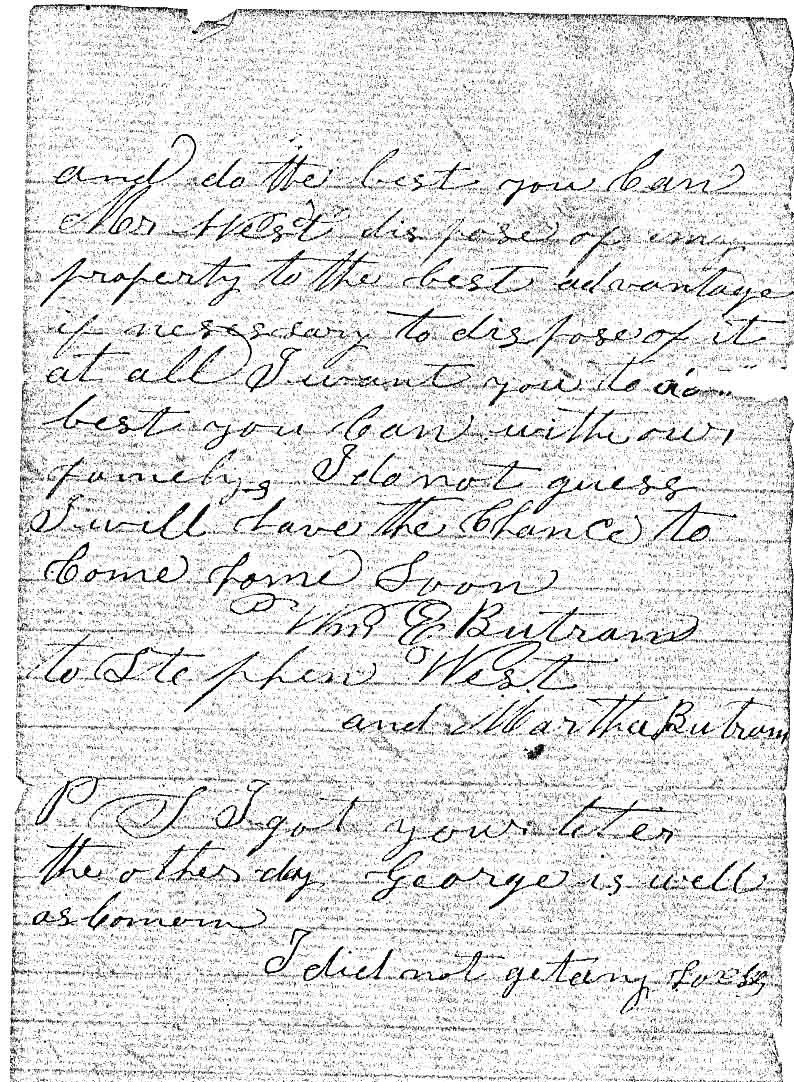 and do the best you Can
Mr West dispose of my
property to the best advantage
if nesessary to dispose of it
at all I want you to do
best you Can with our
famely, I do not guess
I will have the Chance to
Come home Soon
Wm E Butram
to Stephen West
and Martha Butram
P. S I got your leter
the other day George is well
as Comom
I did not get any